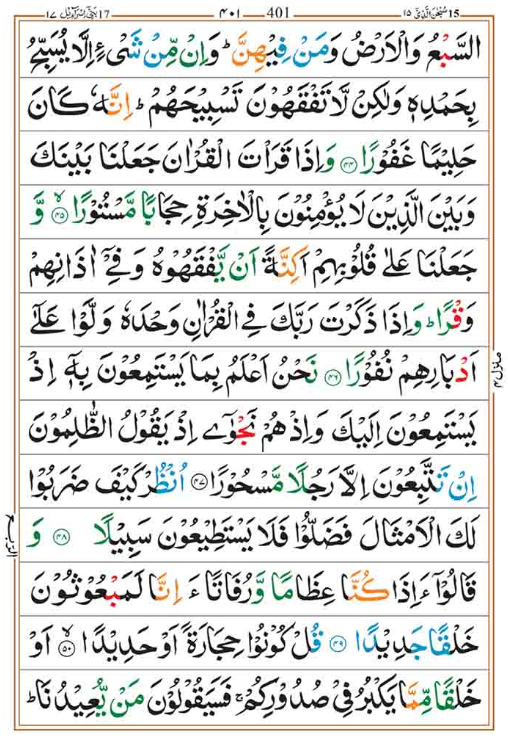 17 بنی اسرآءیل ١٧ ٤٠١ 401 15 سبحٰن الذی ١٥
السَّبْعُ وَالْاَرْضُ وَمَنْ فِيْهِنَّ ؕ وَاِنْ مِّنْ شَیْءٍ اِلَّا يُسَبِّحُ
بِحَمْدِهٖ وَلٰكِنْ لَّا تَفْقَهُوْنَ تَسْبِيْحَهُمْ ؕ اِنَّهٗ كَانَ
حَلِيْمًا غَفُوْرًا ﴿۴۴﴾ وَاِذَا قَرَاْتَ الْقُرْاٰنَ جَعَلْنَا بَيْنَكَ
وَبَيْنَ الَّذِيْنَ لَا يُؤْمِنُوْنَ بِالْاٰخِرَةِ حِجَابًا مَّسْتُوْرًا ۙ﴿۴۵﴾ وَّ
جَعَلْنَا عَلٰی قُلُوْبِهِمْ اَكِنَّةً اَنْ يَّفْقَهُوْهُ وَفِیْۤ اٰذَانِهِمْ
وَقْرًا ؕ وَاِذَا ذَكَرْتَ رَبَّكَ فِی الْقُرْاٰنِ وَحْدَهٗ وَلَّوْا عَلٰۤی
اَدْبَارِهِمْ نُفُوْرًا ﴿۴۶﴾ نَحْنُ اَعْلَمُ بِمَا يَسْتَمِعُوْنَ بِهٖۤ اِذْ
يَسْتَمِعُوْنَ اِلَيْكَ وَاِذْ هُمْ نَجْوٰۤی اِذْ يَقُوْلُ الظّٰلِمُوْنَ
اِنْ تَتَّبِعُوْنَ اِلَّا رَجُلًا مَّسْحُوْرًا ﴿۴۷﴾ اُنْظُرْ كَيْفَ ضَرَبُوْا
لَكَ الْاَمْثَالَ فَضَلُّوْا فَلَا يَسْتَطِيْعُوْنَ سَبِيْلًا ﴿۴۸﴾ وَ
قَالُوْۤا ءَاِذَا كُنَّا عِظَامًا وَّرُفَاتًا ءَاِنَّا لَمَبْعُوْثُوْنَ
خَلْقًا جَدِيْدًا ﴿۴۹﴾ قُلْ كُوْنُوْا حِجَارَةً اَوْ حَدِيْدًا ۙ﴿۵۰﴾ اَوْ
خَلْقًا مِّمَّا يَكْبُرُ فِیْ صُدُوْرِكُمْ ۚ فَسَيَقُوْلُوْنَ مَنْ يُّعِيْدُنَا ؕ
منزل ۴
الربع